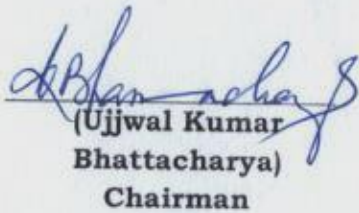 (Ujjwal Kumar
Bhattacharya)
Chairman